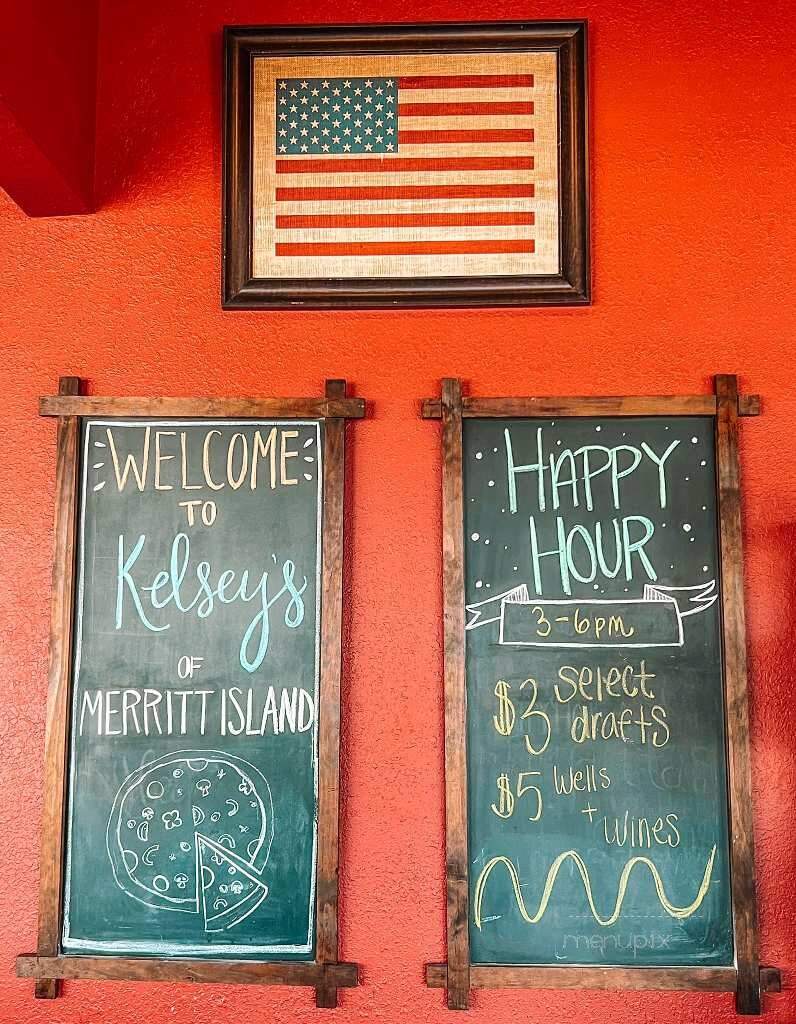 WELCOME
TO
Kelsey's
OF
MERRITT ISLAND
HAPPY
HOUR
3-6pm
$3 select
drafts
$5 Wells
+ Wines
menupix